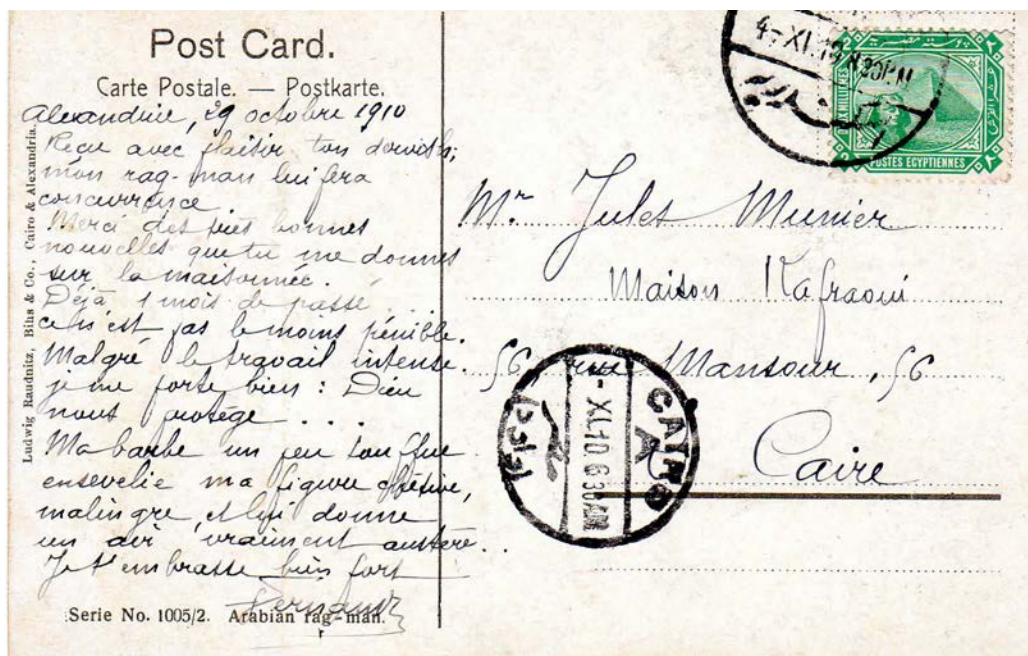 Post Card.
Carte Postale. — Postkarte.
Alexandrie, 29 octobre 1910
Reçu avec plaisir ton derviche;
mon rag-man lui fera
concurrence
Merci des très bonnes
nouvelles que tu me donnes
sur la maisonnée.
Déjà 1 mois de passé
ce n'est pas le moins pénible.
Malgré le travail intense
je me porte bien : Dieu
nous protège . . .
Ma barbe un peu touffue
ensevelie ma figure chétive,
malingre, et lui donne
un air vraiment austère..
Je t'embrasse bien fort
Fernand
Serie No. 1005/2. Arabian rag-man.
Ludwig Raudnitz, Biha & Co., Cairo & Alexandria.
Mr Jules Munier
Maison Kafraoui
56, rue Mansour, 56
Caire
CAIRO
A
XI.10.6 30 AM
4-XI.10
POSTES EGYPTIENNES